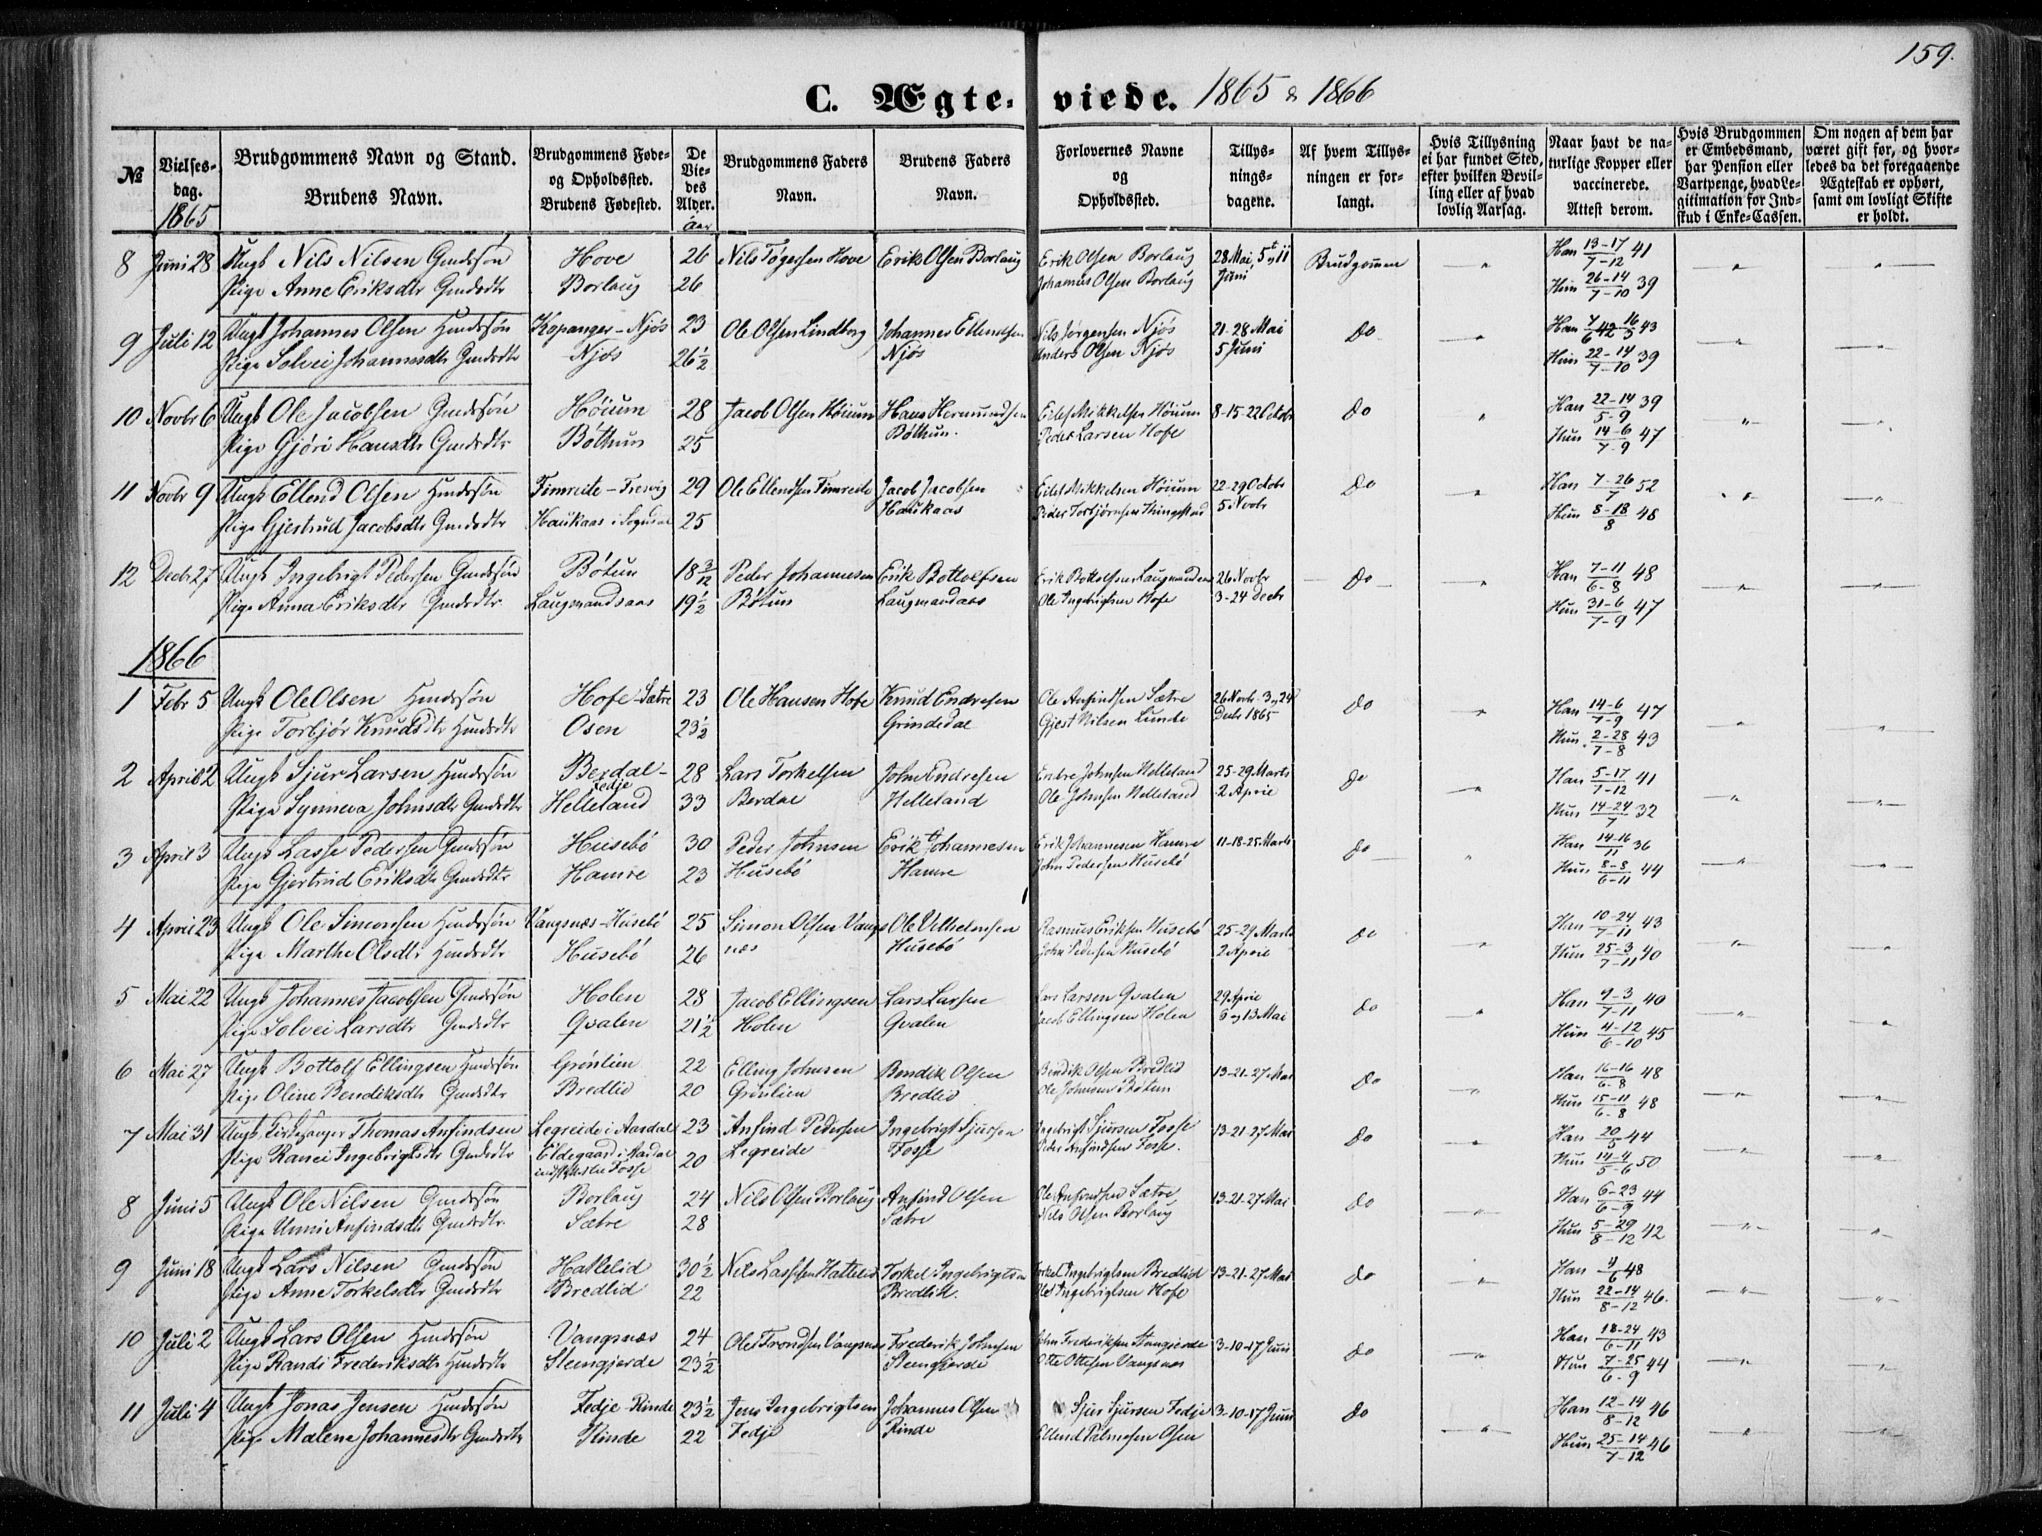 159.
C. Ægte-viede. 1865 & 1866
№
Vielses-dag. 1865
Brudgommens Navn og Stand. Brudens Navn.
Brudgommens Føde- og Opholdssted. Brudens Fødested.
De Vie-des Alder. Aar
Brudgommens Faders Navn.
Brudens Faders Navn.
Forlovernes Navne og Opholdssted.
Tillys-nings-dagene.
Af hvem Tillys-ningen er for-langt.
Hvis Tillysning ei har fundet Sted, efter hvilken Bevil-ling eller af hvad lovlig Aarsag.
Naar havt de na-turlige Kopper eller vaccinerede. Attest derom.
Hvis Brudgommen er Embedsmand, har Pension eller Vartpenge, hvad Le-gitimation for Ind-skud i Enke-Cassen.
Om nogen af dem har været gift før, og hvor-ledes da det foregaaende Ægteskab er ophørt, samt om lovligt Skifte er holdt.
8 Juni 28 Ungk Nils Nilsen Gmdssøn Hove 26 Nils Tøgersen Hove Erik Olsen Borlaug Erik Olsen Borlaug 28 Mai, 5 og 11 Brudgommen Han 13-17/7-12 41
Pige Anne Eriksdtr Gmdsdtr Borlaug 26 Johannes Olsen Borlaug Juni Hun 26-14/7-10 39
9 Juli 12 Ungk Johannes Olsen Hmdssøn Kopanger - Njøs 23 Ole Olsen Lindborg Johannes Ellendsen Nils Jørgensen Njøs 21-28 Mai Do Han 7/6 42 16/5 43
Pige Solvei Johannesdtr Gmdsdtr Njøs 26 1/2 Njøs Anders Olsen Njøs 5 Juni Hun 22-14/7-10 39
10 Novbr 6 Ungk Ole Jacobsen Gmdssøn Høium 28 Jacob Olsen Høium Hans Hermundsen Eilef Mikkelsen Høium 8-15-22 Octobr Do Han 22-14/5-9 39
Pige Gjøri Hansdtr Gmdsdtr Bøthun 25 Bøthun. Peder Larsen Hofe Hun 14-6/7-9 47
11 Novbr 9 Ungk Ellend Olsen Hmdssøn Fimreite - Fresvig 29 Ole Ellendsen Fimreite Jacob Jacobsen Eilef Mikkelsen Høium 22-29 Octobr Do Han 7-26/7 52
Pige Gjertrud Jacobsdtr Gmdsdtr Haukaas i Sogndal 25 Haukaas Peder Torbjørnsen Thingstad 5 Novbr Hun 8-18/8 48
12 Decbr 27 Ungk Ingebrigt Pedersen Gmdssøn Bøtun 18 3/12 Peder Johannesen Erik Bottolfsen Erik Bottolfsen Laugmandaas 26 Novbr Do Han 7-11/6-8 48
Pige Anna Eriksdtr Gmdsdtr Laugmandsaas 19 1/2 Bøtun Laugmandaas Ole Ingebrigtsen Hofe 3-24 Decbr Hun 31-6/7-9 47
1866
1 Febr 5 Ungk Ole Olsen Hmdssøn Hofe - Sætre 23 Ole Hansen Hofe Knud Endresen Ole Anfindsen Sætre 26 Novbr-3 og 24 Do Han 14-6/7-9 47
Pige Torbjør Knudsdtr Hmdsdtr Osen 23 1/2 Grindedal Gjest Nilsen Lunde Decbr 1865 Hun 2-28/7-8 43
2 April 2 Ungk Sjur Larsen Hmdssøn Berdal - Fedje 28 Lars Torkelsen John Endresen Endre Johnsen Helleland 25-29 Marts Do Han 5-17/7-12 41
Pige Synneva Johnsdtr Gmdsdtr Helleland 33 Berdal Helleland Ole Johnsen Helleland 2 April Hun 14-24/7 32
3 April 3 Ungk Lasse Pedersen Gmdssøn Husebø 30 Peder Johnsen Erik Johannesen Erik Johannesen Hamre 11-18-25 Marts Do Han 14-16/11 36
Pige Gjertrud Eriksdtr Gmdsdtr Hamre 23 Husebø Hamre John Pedersen Husebø Hun 8-8/6-11 44
4 April 23 Ungk Ole Simonsen Hmdssøn Vangsnæs - Husebø 25 Simon Olsen Vangs- Ole Vilhelmsen Rasmus Eriksen Husebø 25-29 Marts Do Han 10-24/7-11 43
Pige Marthe Olsdtr Hmdsdtr Husebø 26 næs Husebø John Pedersen Husebø 2 April Hun 25-3/7-11 40
5 Mai 22 Ungk Johannes Jacobsen Gmdssøn Holen 28 Jacob Ellingsen Lars Larsen Lars Larsen Qvalen 29 April Do Han 9-3/7-11 40
Pige Solvei Larsdtr Gmdsdtr Qvalen 21 1/2 Holen Qvalen Jacob Ellingsen Holen 6 og 13 Mai Hun 4-12/6-10 45
6 Mai 27 Ungk Bottolf Ellingsen Hmdssøn Grønlien 22 Elling Johnsen Bendik Olsen Bendik Olsen Bredlid 13-21-27 Mai Do Han 16-16/6-8 48
Pige Oline Bendiksdtr Gmdsdtr Bredlid 20 Grønlien Bredlid Ole Johnsen Bøtun Hun 15-11/6-8 48
7 Mai 31 Ungk, Kirkesanger Thomas Anfindsen Legreide i Aardal 23 Anfind Pedersen Ingebrigt Sjursen Ingebrigt Sjursen Fosse 13-21-27 Mai Do Han 20/5 44
Pige Ranei Ingebrigtsdtr Gmdsdtr Eldegaard i Aardal 20 Legreide Fosse Peder Anfindsen Fosse. Hun 14-4/5-6 50
8 Juni 5 Ungk Ole Nilsen Gmdssøn Borlaug 24 Nils Olsen Borlaug Anfind Olsen Ole Anfindsen Sætre 13-21-27 Mai Do Han 6-23/6-9 44
Pige Unni Anfindsdtr Gmdsdtr Sætre 28 Sætre Nils Olsen Borlaug Hun 5-29/8-12 42
9 Juni 18 Ungk Lars Nilsen Gmdssøn Hatlelid 30 1/2 Nils Lassesen Hatlelid Torkel Ingebrigtsen Torkel Ingebrigtsen Bredlid 13-21-27 Mai Do Han 4/6 48
Pige Anne Torkelsdtr Gmdsdtr Bredlid 22 Bredlid. Ole Ingebrigtsen Hofe Hun 22-14/8-12 46.
10 Juli 2 Ungk Lars Olsen Hmdssøn Vangsnæs 24 Ole Trondsen Vangsnæs Frederik Johnsen John Frederiksen Steingjerde 3-10-17 Juni Do Han 18-24/6-11 43
Pige Randi Frederiksdtr Hmdsdtr Steingjerde 23 1/2 Steingjerde Otte Ottesen Vangsnæs Hun 7-25/6-9 44
11 Juli 4 Ungk Jonas Jensen Hmdssøn Fedje - Rinde 23 1/2 Jens Ingebrigtsen Johannes Olsen Sjur Sjursen Fedje 3-10-17 Juni Do Han 12-14/8-12 46
Pige Malene Johannesdtr Gmdsdtr Rinde 22 Fedje Rinde Ellend Palmesen Osen Hun 25-14/7-12 46